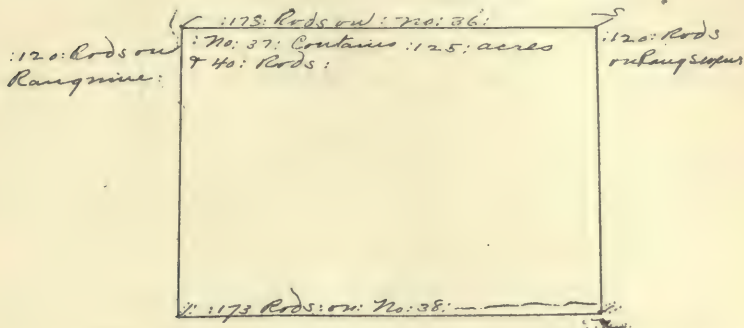 :175: Rods on: No: 36:
:120: Rods on
Rang nine:
:No: 37: Contains :125: acres
& 40: Rods:
:120: Rods
on Rang
:173 Rods: on: No: 38: